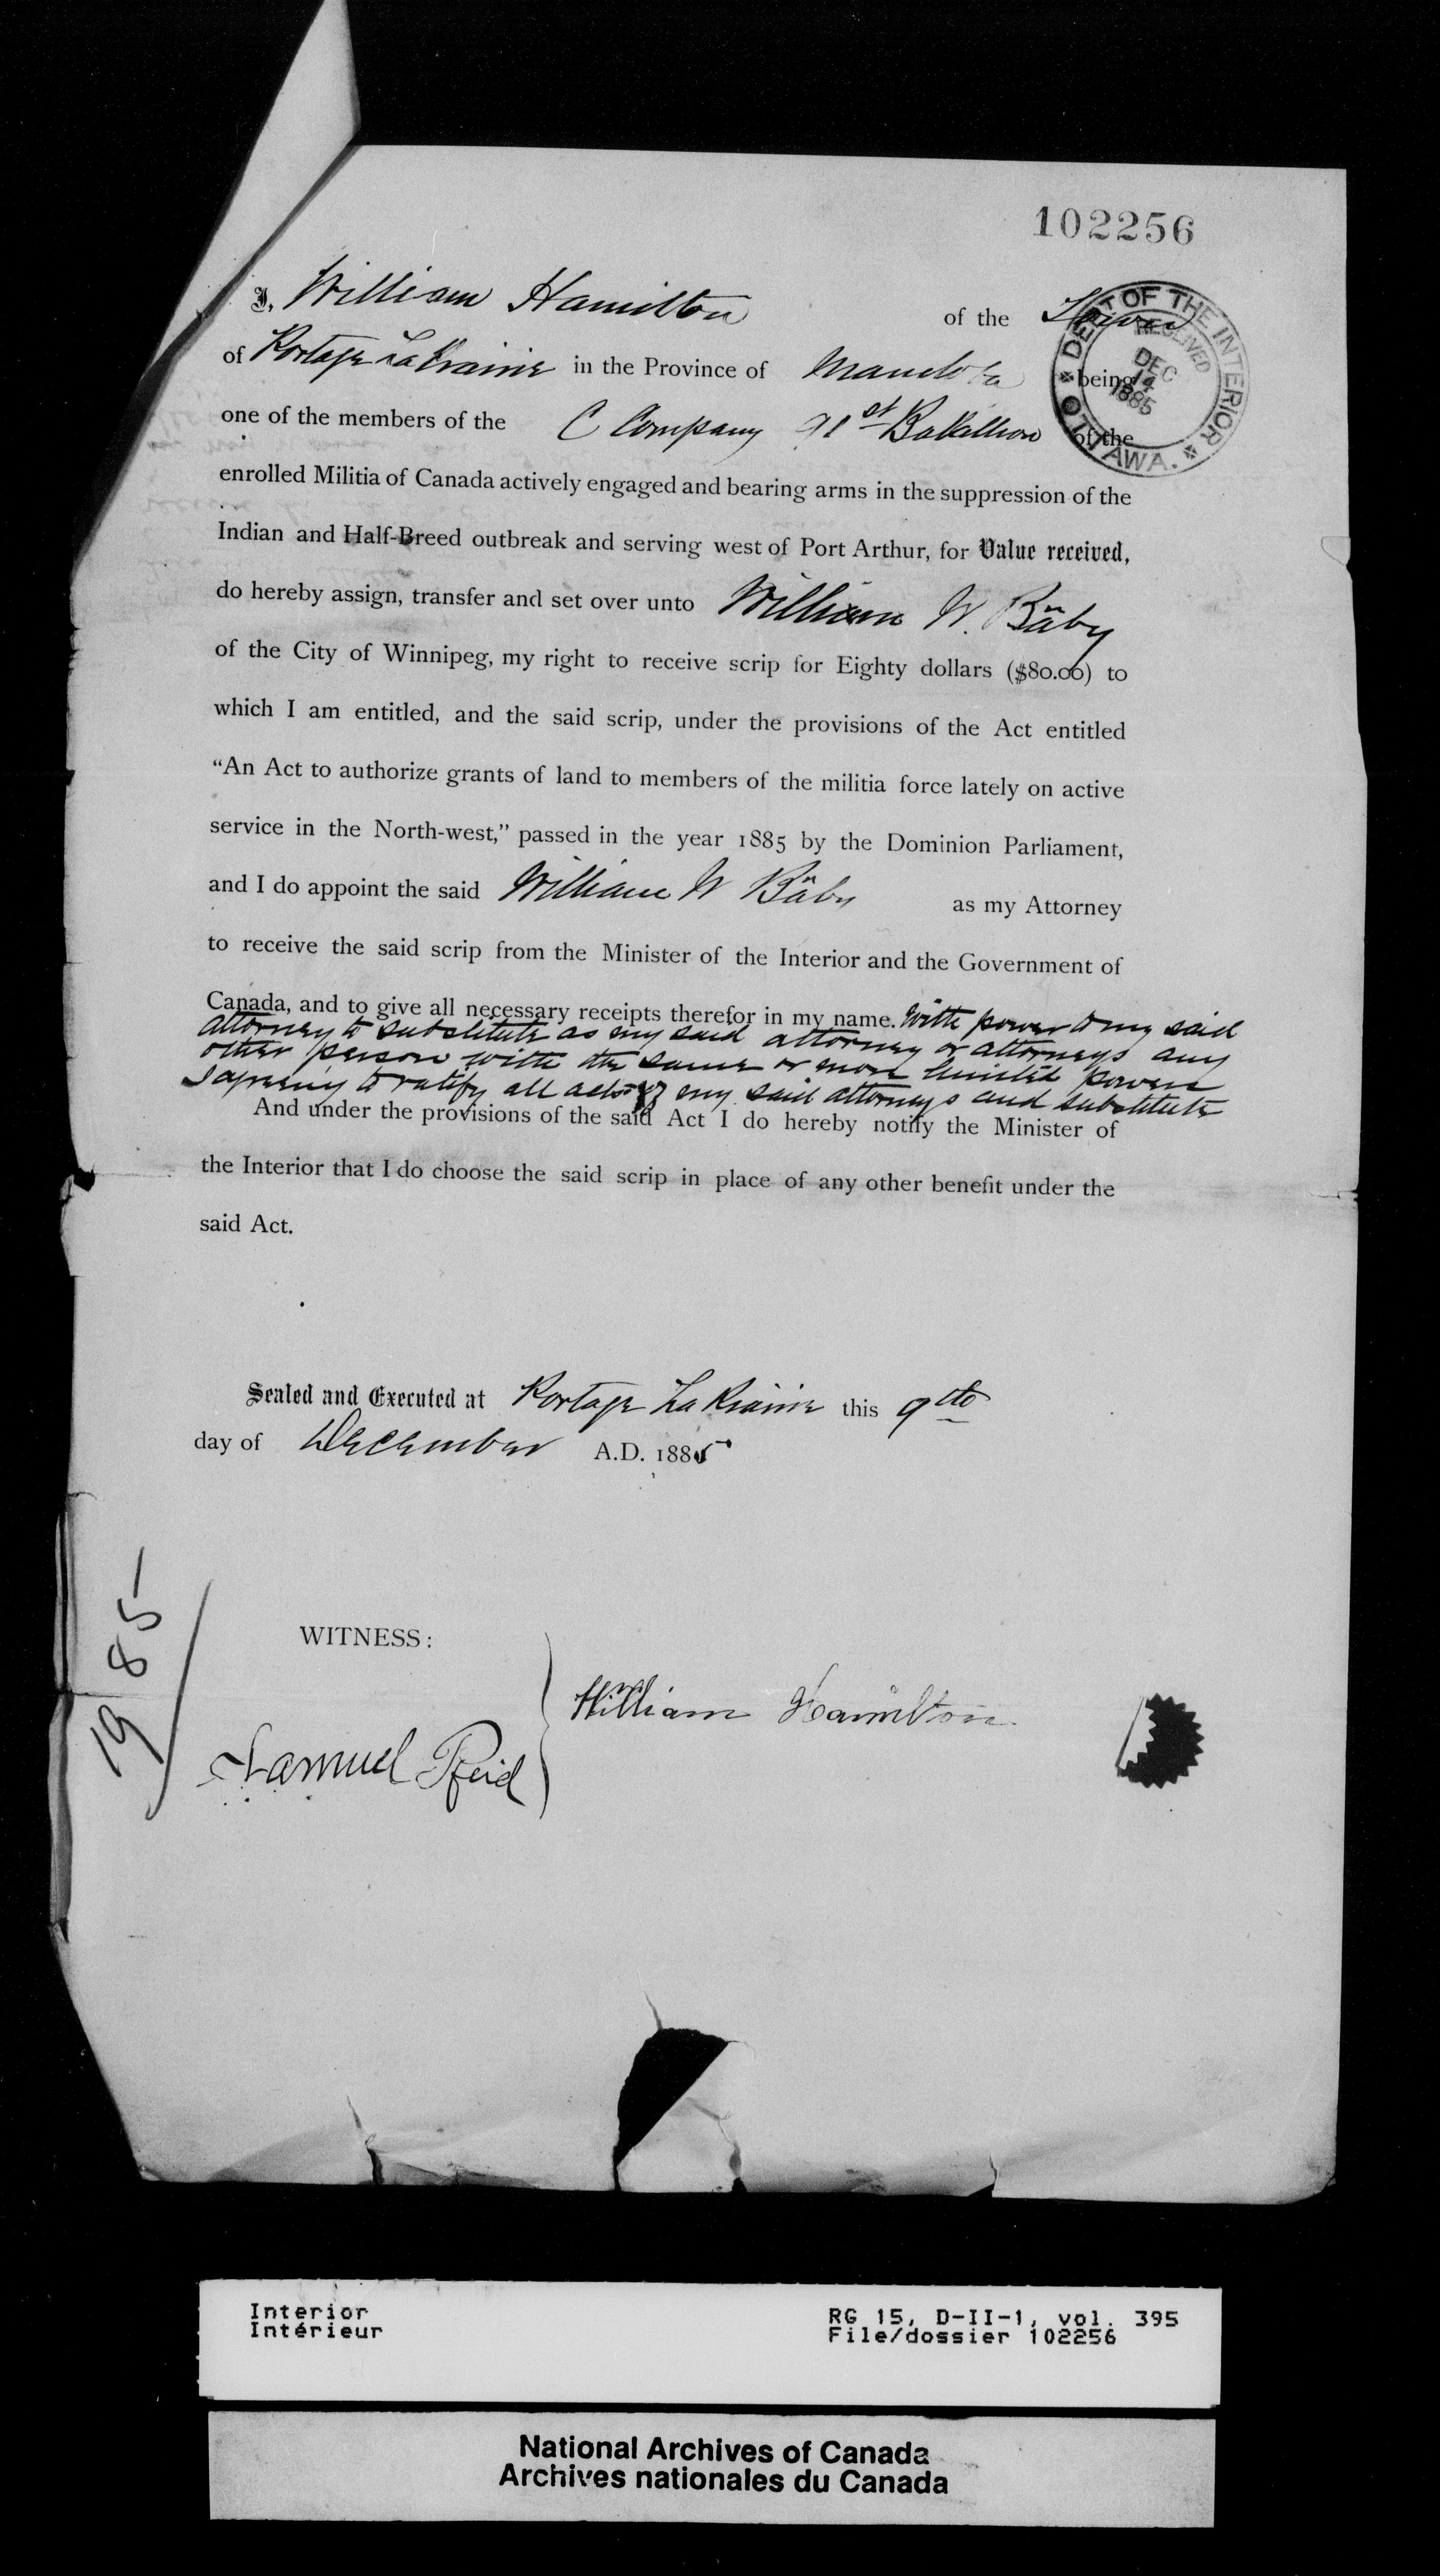 102256
DEPT OF THE INTERIOR
RECEIVED
DEC
14
1885
OTTAWA.
I, William Hamilton of the Town
of Portage La Prairie in the Province of Manitoba being
one of the members of the C Company 91st Battallion of the
enrolled Militia of Canada actively engaged and bearing arms in the suppression of the
Indian and Half-Breed outbreak and serving west of Port Arthur, for Value received,
do hereby assign, transfer and set over unto William W. Bâby
of the City of Winnipeg, my right to receive scrip for Eighty dollars ($80.00) to
which I am entitled, and the said scrip, under the provisions of the Act entitled
“An Act to authorize grants of land to members of the militia force lately on active
service in the North-west,” passed in the year 1885 by the Dominion Parliament,
and I do appoint the said William W Bâby as my Attorney
to receive the said scrip from the Minister of the Interior and the Government of
Canada, and to give all necessary receipts therefor in my name. With power to my said
attorney to substitute as my said attorney or attorneys any
other person with the same or more limited powers
I agreeing to ratify all acts of my said attorneys and substitute
And under the provisions of the said Act I do hereby notify the Minister of
the Interior that I do choose the said scrip in place of any other benefit under the
said Act.
Sealed and Executed at Portage La Prairie this 9th
day of December A.D. 1885
19/85
WITNESS:
William Hamilton
Samuel Reid
Interior
Intérieur
RG 15, D-II-1, vol. 395
File/dossier 102256
National Archives of Canada
Archives nationales du Canada